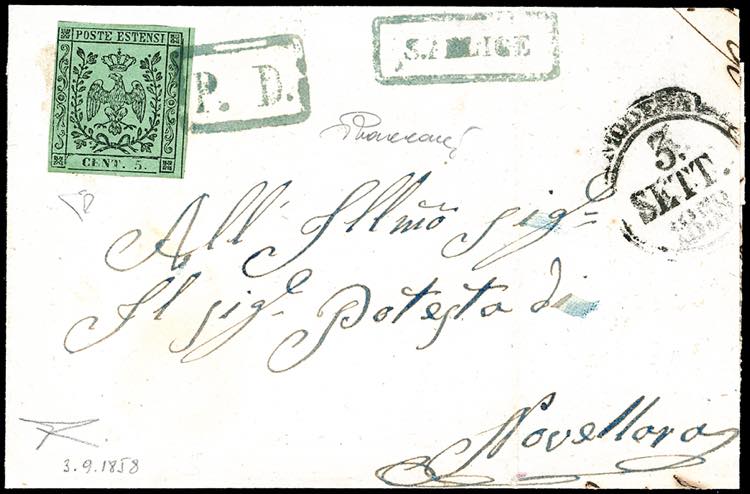 POSTE ESTENSI
CENT. 5.
P. D.
S. FELICE
MODENA
3.
SETT.
All' Illmõ sigr.
Il sigr. Potestà di
Novellara
3.9.1858